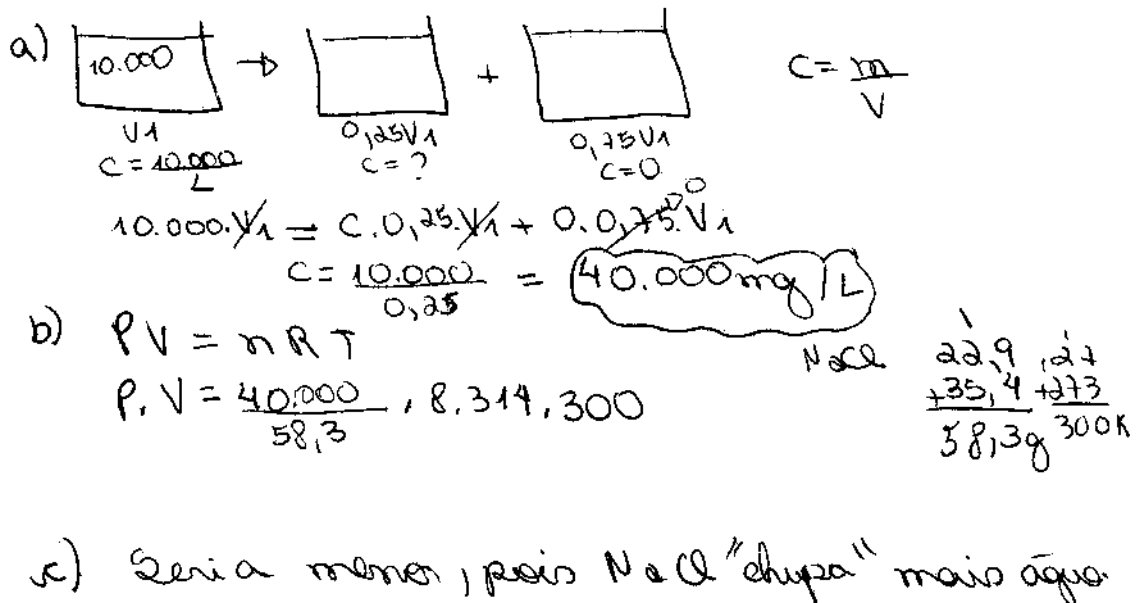 a) 10.000 → + C = m/V
V1 0,25V1 0,75V1
C = 10.000/L C = ? C = 0
10.000.V1 = C.0,25.V1 + 0.0,75.V1 0
C = 10.000/0,25 = 40.000mg/L
b) PV = nRT
P.V = 40.000/58,3 . 8.314.300
NaCl 22,9 + 35,4 58,3g
27 + 273 300K
c) Seria menor, pois NaCl "chupa" mais água.